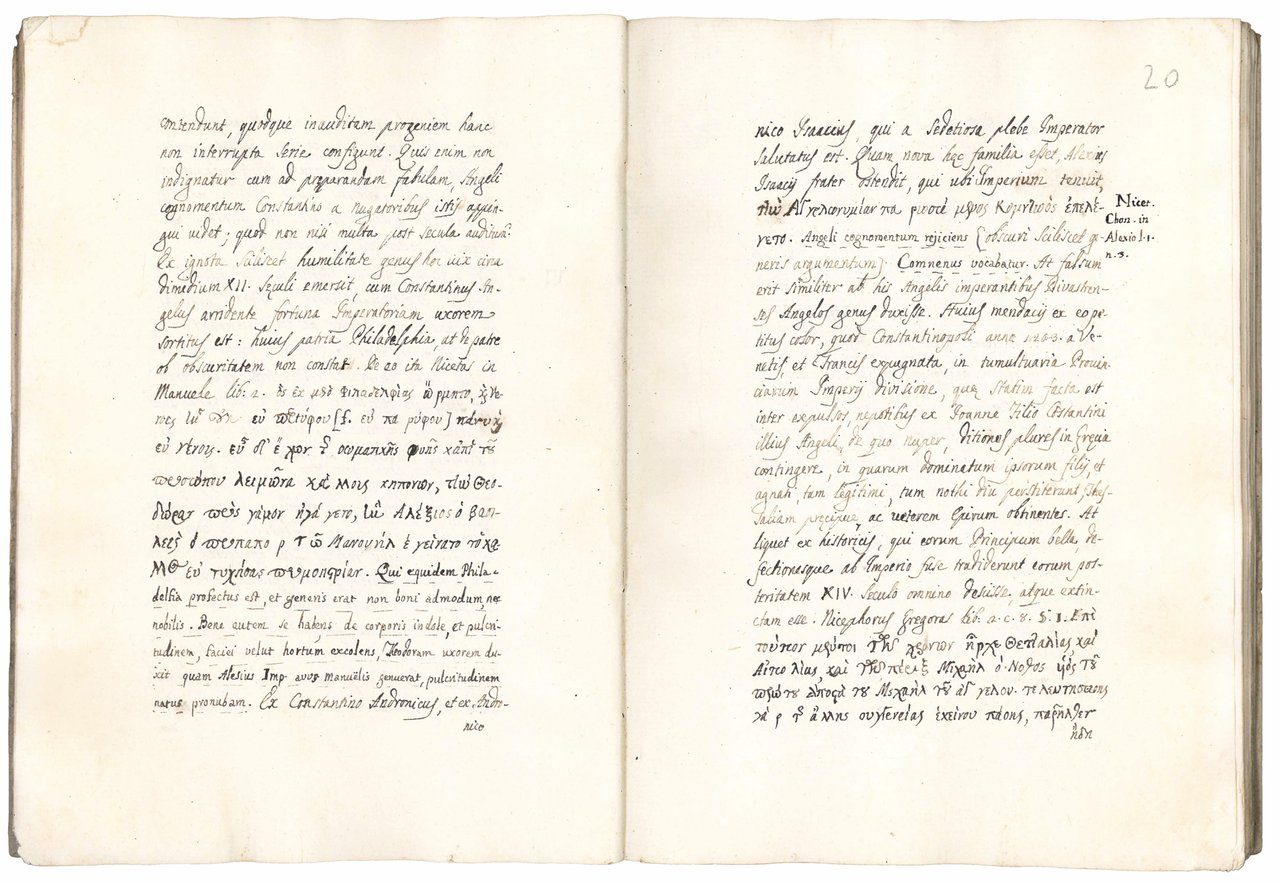 contendunt, quodque inauditam progeniem hanc
non interrupta serie configunt. Quis enim non
indignatur cum ad preparandam fabulam, Angeli
cognomentum Constantino a nugatoribus istis appin-
gui videt; quod non nisi multa post secula auditum.
Ex ignota scilicet humilitate genus hoc vix circa
dimedium XII. Seculi emersit, cum Constantinus An-
gelus arridente fortuna Imperatoriam uxorem
sortitus est: huius patria Philadelphia, at de patre
ob obscuritatem non constat. De eo ita Nicetas in
Manuele lib: 2. ὃς ἐκ μὲν Φιλαδελφίας ὥρμητο,
[f. εὖ πα ρύφου]
εὖ γένοις.
λειμῶνα καὶ τὴν Θεο-
δώραν πρὸς γάμον ἠγά γετο, ἣν Ἀλέξιος ὁ βασι-
λεὺς ὁ Μανουὴλ ἐ γείνατο τὸ κά-
εὐ τυχήσας. Qui equidem Phila-
delfia profectus est, et generis erat non boni admodum, nec
nobilis. Bene autem se habens de corporis indole, et pulcri-
tudinem, faciei velut hortum excolens, Theodoram uxorem du-
xit quam Alesius Imp. avus manuëlis genuerat, pulcritudinem
natus pronubam. Ex Constantino Andronicus, et ex Andro-
nico
20
nico Isaacius, qui a sedetiosa plebe Imperator
salutatus est. Quam nova hęc familia esset, Alexius
Isaacij frater ostendit, qui ubi Imperium tenuit,
Κομνηνὸς ἐπελέ-
γετο. Angeli cognomentum rejiciens [obscuri scilicet ge-
neris argumentum]. Comnenus vocabatur. At falsum
erit similiter ab his Angelis imperantibus Divasten-
ses Angelos genus duxisse. Huius mendacij ex eo pe-
titus color, quod Constantinopoli anno 1203. a Ve-
netis, et Francis expugnata, in tumultuaria Provin-
ciarum Imperij divisione, quę statim facta est
inter expulsos, nepotibus ex Joanne filio Costantini
illius Angeli, de quo nuper, ditiones plures in Gręcia
contingere, in quarum dominatum ipsorum filij, et
agnati tam legitimi, tum nothi diu perstiterunt, Thes-
saliam pręcipue, ac veterem Epirum obtinentes. At
liquet ex historicis, qui eorum Principum bella, de-
fectionesque ab Imperio fuse tradiderunt eorum pos-
teritatem XIV. Seculo omnino desiisse, atque extin-
ctam esse. Nicephorus Gregoras lib. 2. c. 8. §. 1. Ἐπὶ
ἦρχε Θετταλίας, καὶ
Αἰτωλίας, καὶ Μιχαὴλ ὁ Νόθος υἱὸς τοῦ
Μιχαὴλ τοῦ ἀγ γέλου.
γὰ ρ τῆς ἄλλης συγγενείας ἐκείνου πάσης, παρῆλθεν
ἤδη
Nicet.
Chon. in
Alexio l. 1.
n. 3.